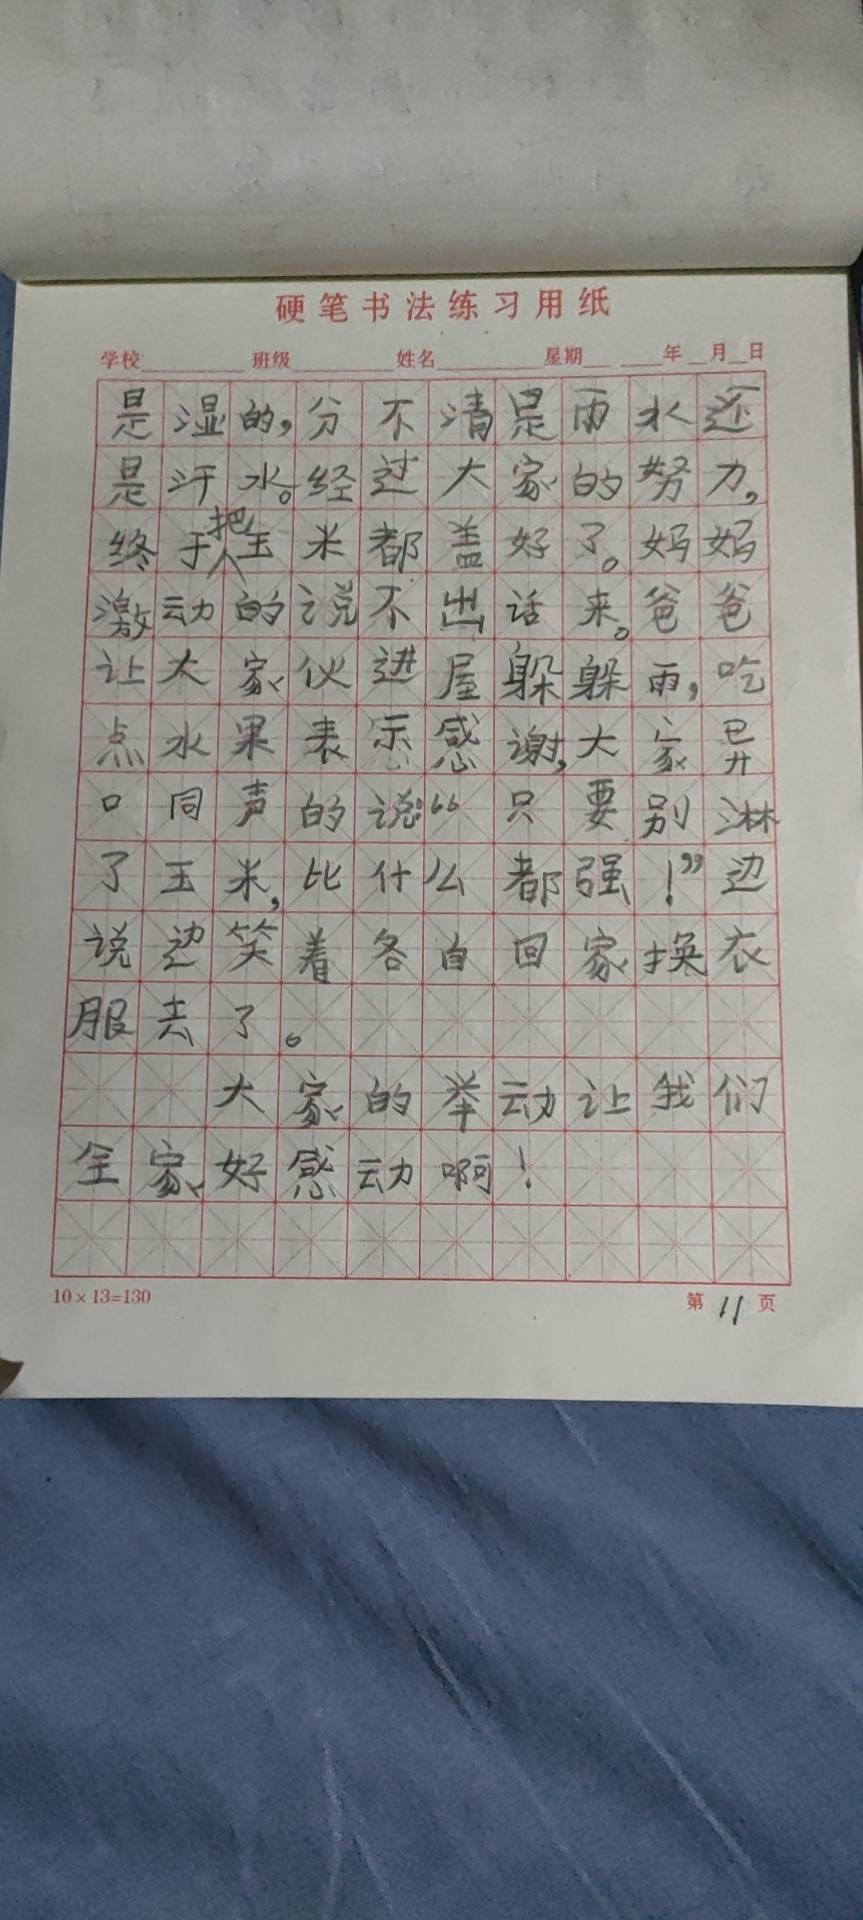 硬笔书法练习用纸
学校 班级 姓名 星期 年 月 日
是湿的,分不清是雨水还
是汗水。经过大家的努力,
终于把玉米都盖好了。妈妈
激动的说不出话来。爸爸
让大家伙进屋躲躲雨,吃
点水果表示感谢,大家异
口同声的说:“只要别淋
了玉米,比什么都强!”边
说边笑着各自回家换衣
服去了。
大家的举动让我们
全家好感动啊!
10×13=130 第11页